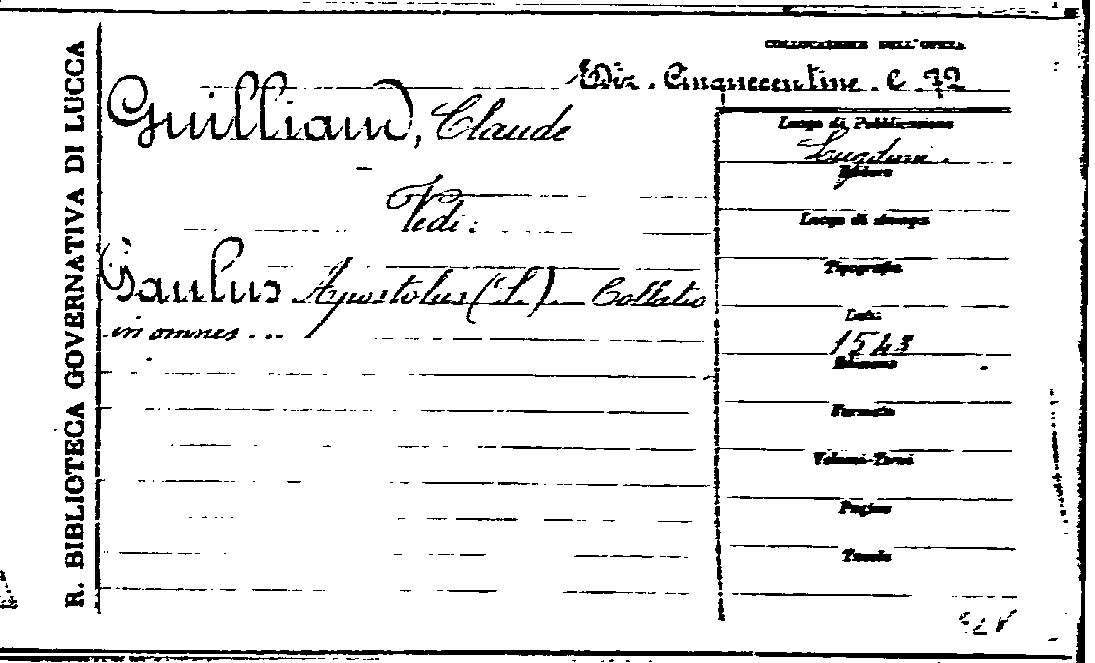 R. BIBLIOTECA GOVERNATIVA DI LUCCA
COLLOCAZIONE DELL'OPERA
Ediz. Cinquecentine. C. 72
Guilliaud, Claude
Vedi:
Paulus Apostolus (S.) Collatio
in omnes ...
Luogo di Pubblicazione
Lugduni.
Editore
Luogo di stampa
Tipografia
Data
1543
Edizione
Formato
Volumi-Tomi
Pagine
Tavole